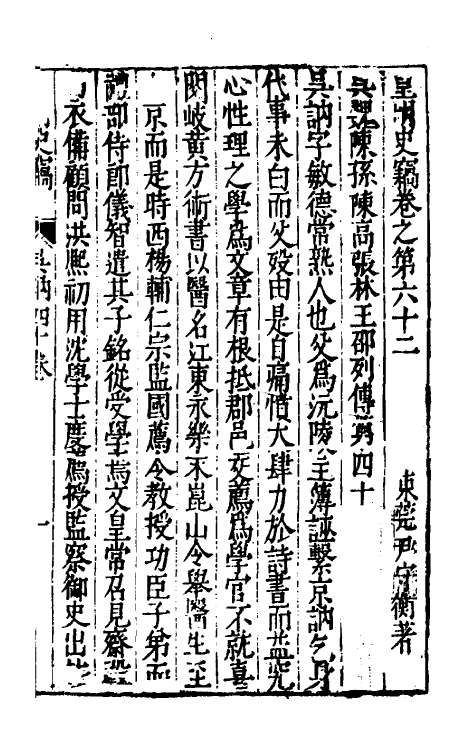 皇明史竊卷之第六十二
東莞尹守衡著
吳魏陳孫陳高張林王邵列傳第四十
吳訥字敏德常熟人也父為沅陵主簿誣繫京訥乞身
代事未白而父歿由是自痛惜大肆力於詩書而益究
心性理之學為文章有根抵郡邑交薦為學官不就喜
閱岐黃方術書以醫名江東永樂末崑山令舉醫生至
京而是時西楊輔仁宗監國薦令教授功臣子弟而
禮部侍郎儀智遣其子銘從受學焉文皇常召見齋
衣備顧問洪熙初用沈學士度薦授監察御史出
史竊
吳訥四十卷
一